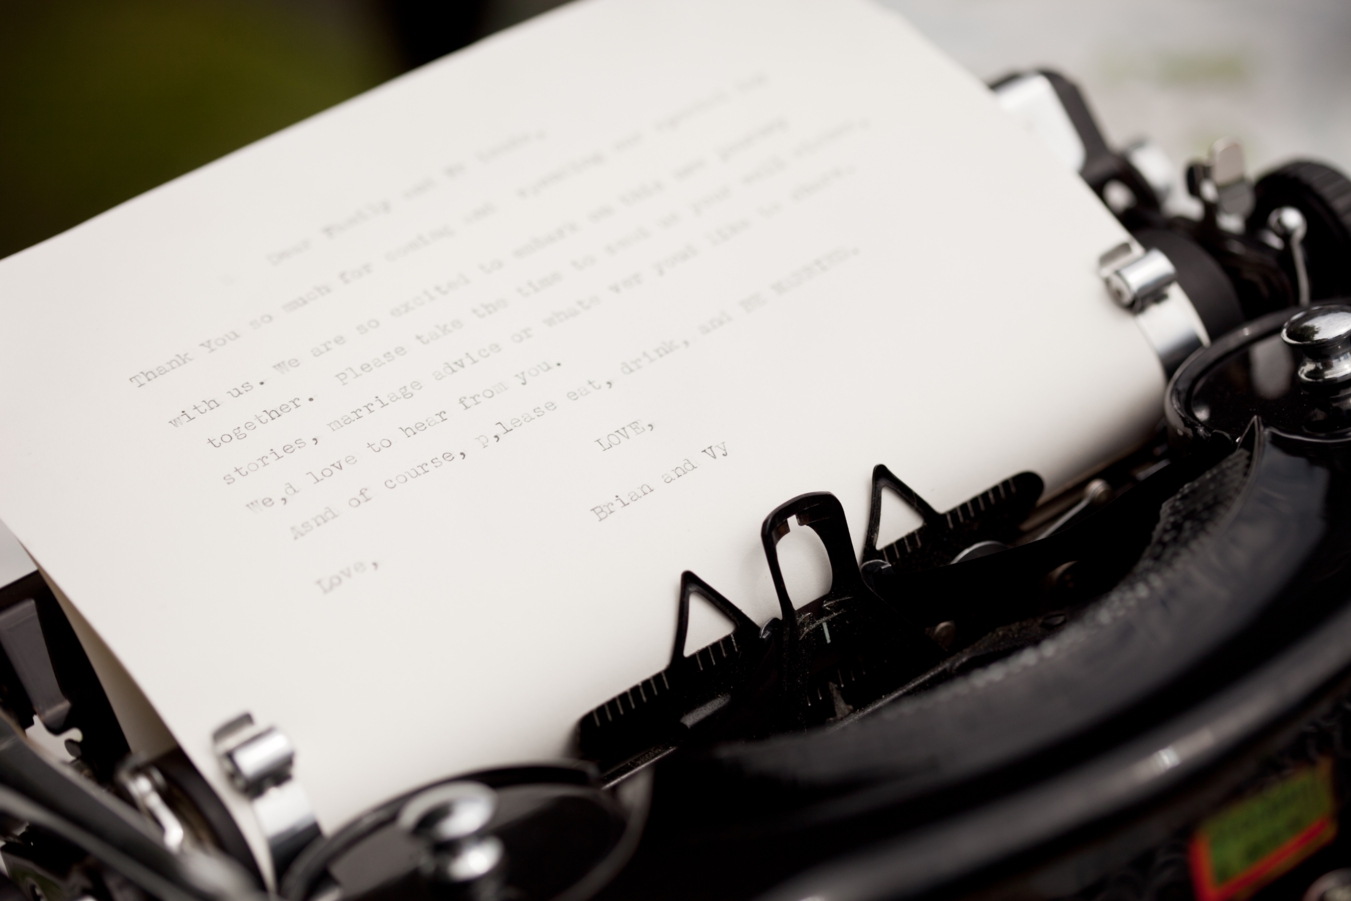 Dear Family and
Thank You so much for coming and spending our special day
with us. We are so excited to embark on this new journey
together. Please take the time to tell us your well wishes,
stories, marriage advice or whate ver youd like to share.
We,d love to hear from you.
Asnd of course, p,lease eat, drink, and BE MARRIED.
LOVE,
Brian and Vy
Love,